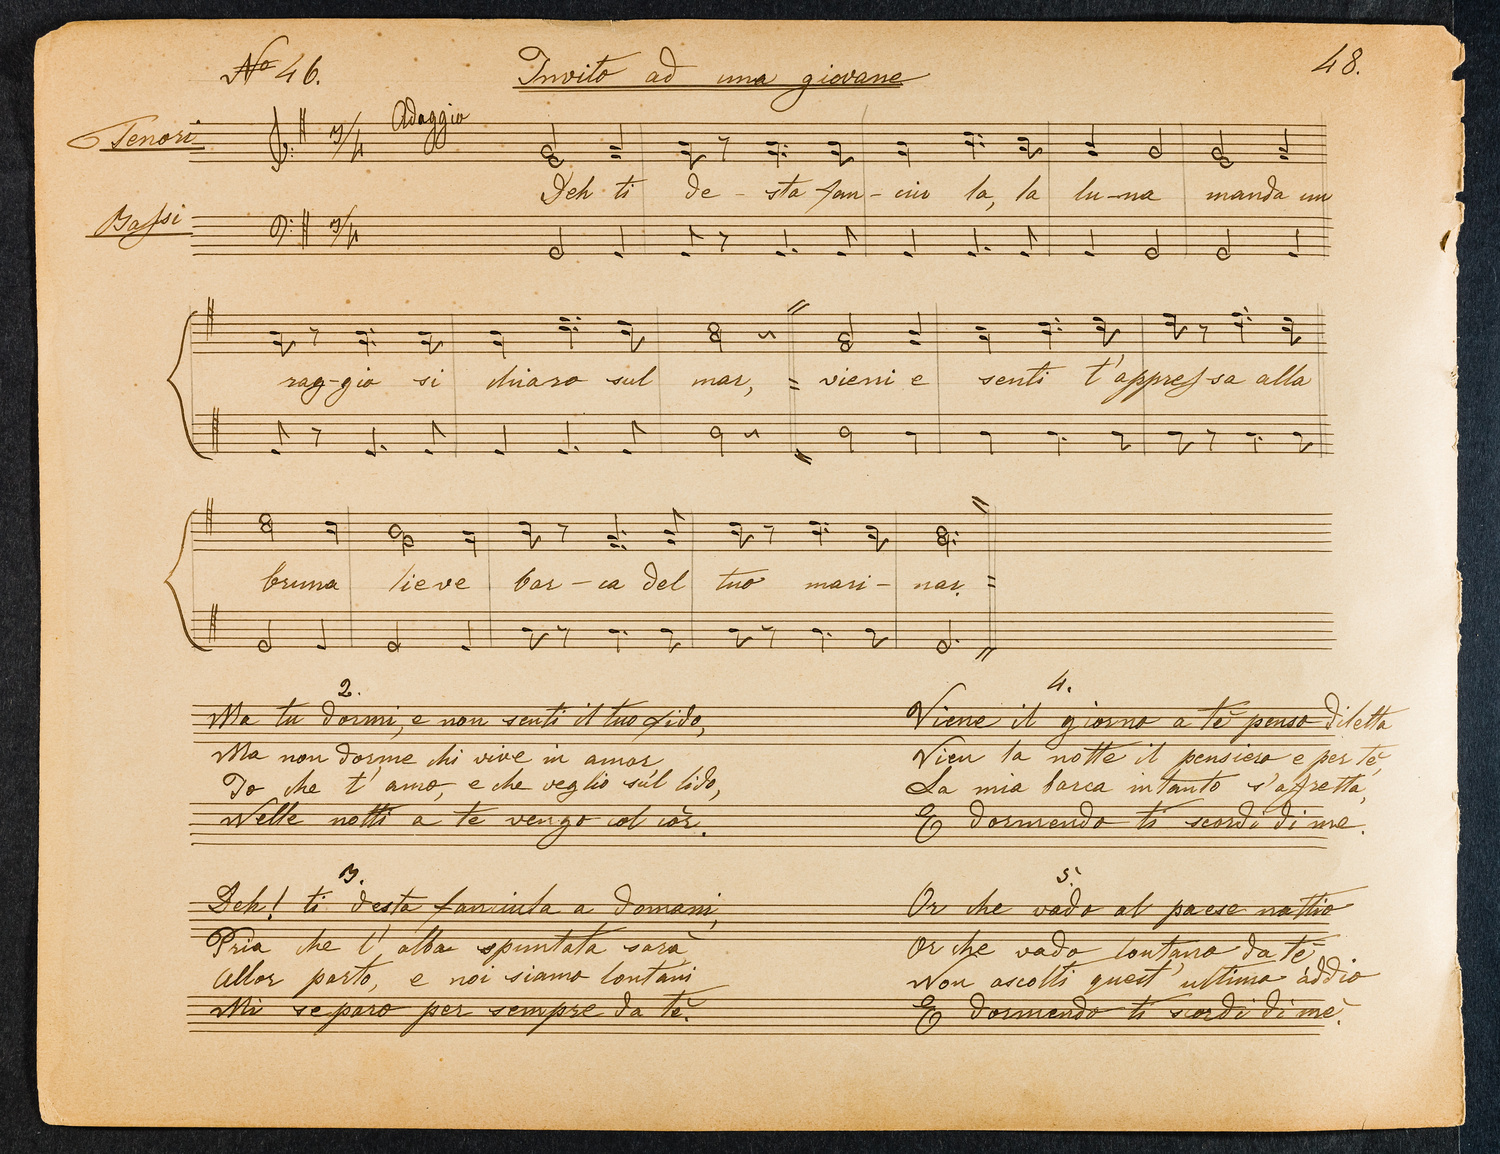 No 46. Invito ad una giovane 48.
Adaggio
Tenori
Deh ti de - sta fan - ciu la, la lu - na manda un
Bassi
rag - gio si chiaro sul mar, = vieni e senti t'appres - sa alla
bruna lieve bar - ca del tuo mari - nar. =
2.
Ma tu dormi, e non senti il tuo fido,
Ma non dorme chi vive in amor
Io che t'amo, e che veglio sul lido,
Nelle notti a te vengo col cor.
3.
Deh! ti desta fanciula a domani,
Pria che l'alba spuntata sarà
Allor parto, e noi siamo lontani
Mi separo per sempre da tè.
4.
Viene il giorno a tè penso diletta
Vien la notte il pensiero e per tè,
La mia barca intanto s'affretta,
E dormendo ti scordi di me.
5.
Or che vado al paese nattio
Or che vado lontano da tè
Non ascolti quest'ultimo áddio
E dormendo ti scordi di mè.